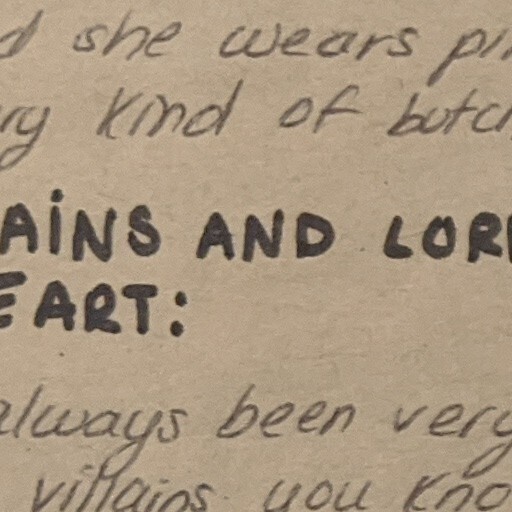 d she wears pi
ry kind of butch
AiNS AND LOR
EART:
always been very
villains you kno